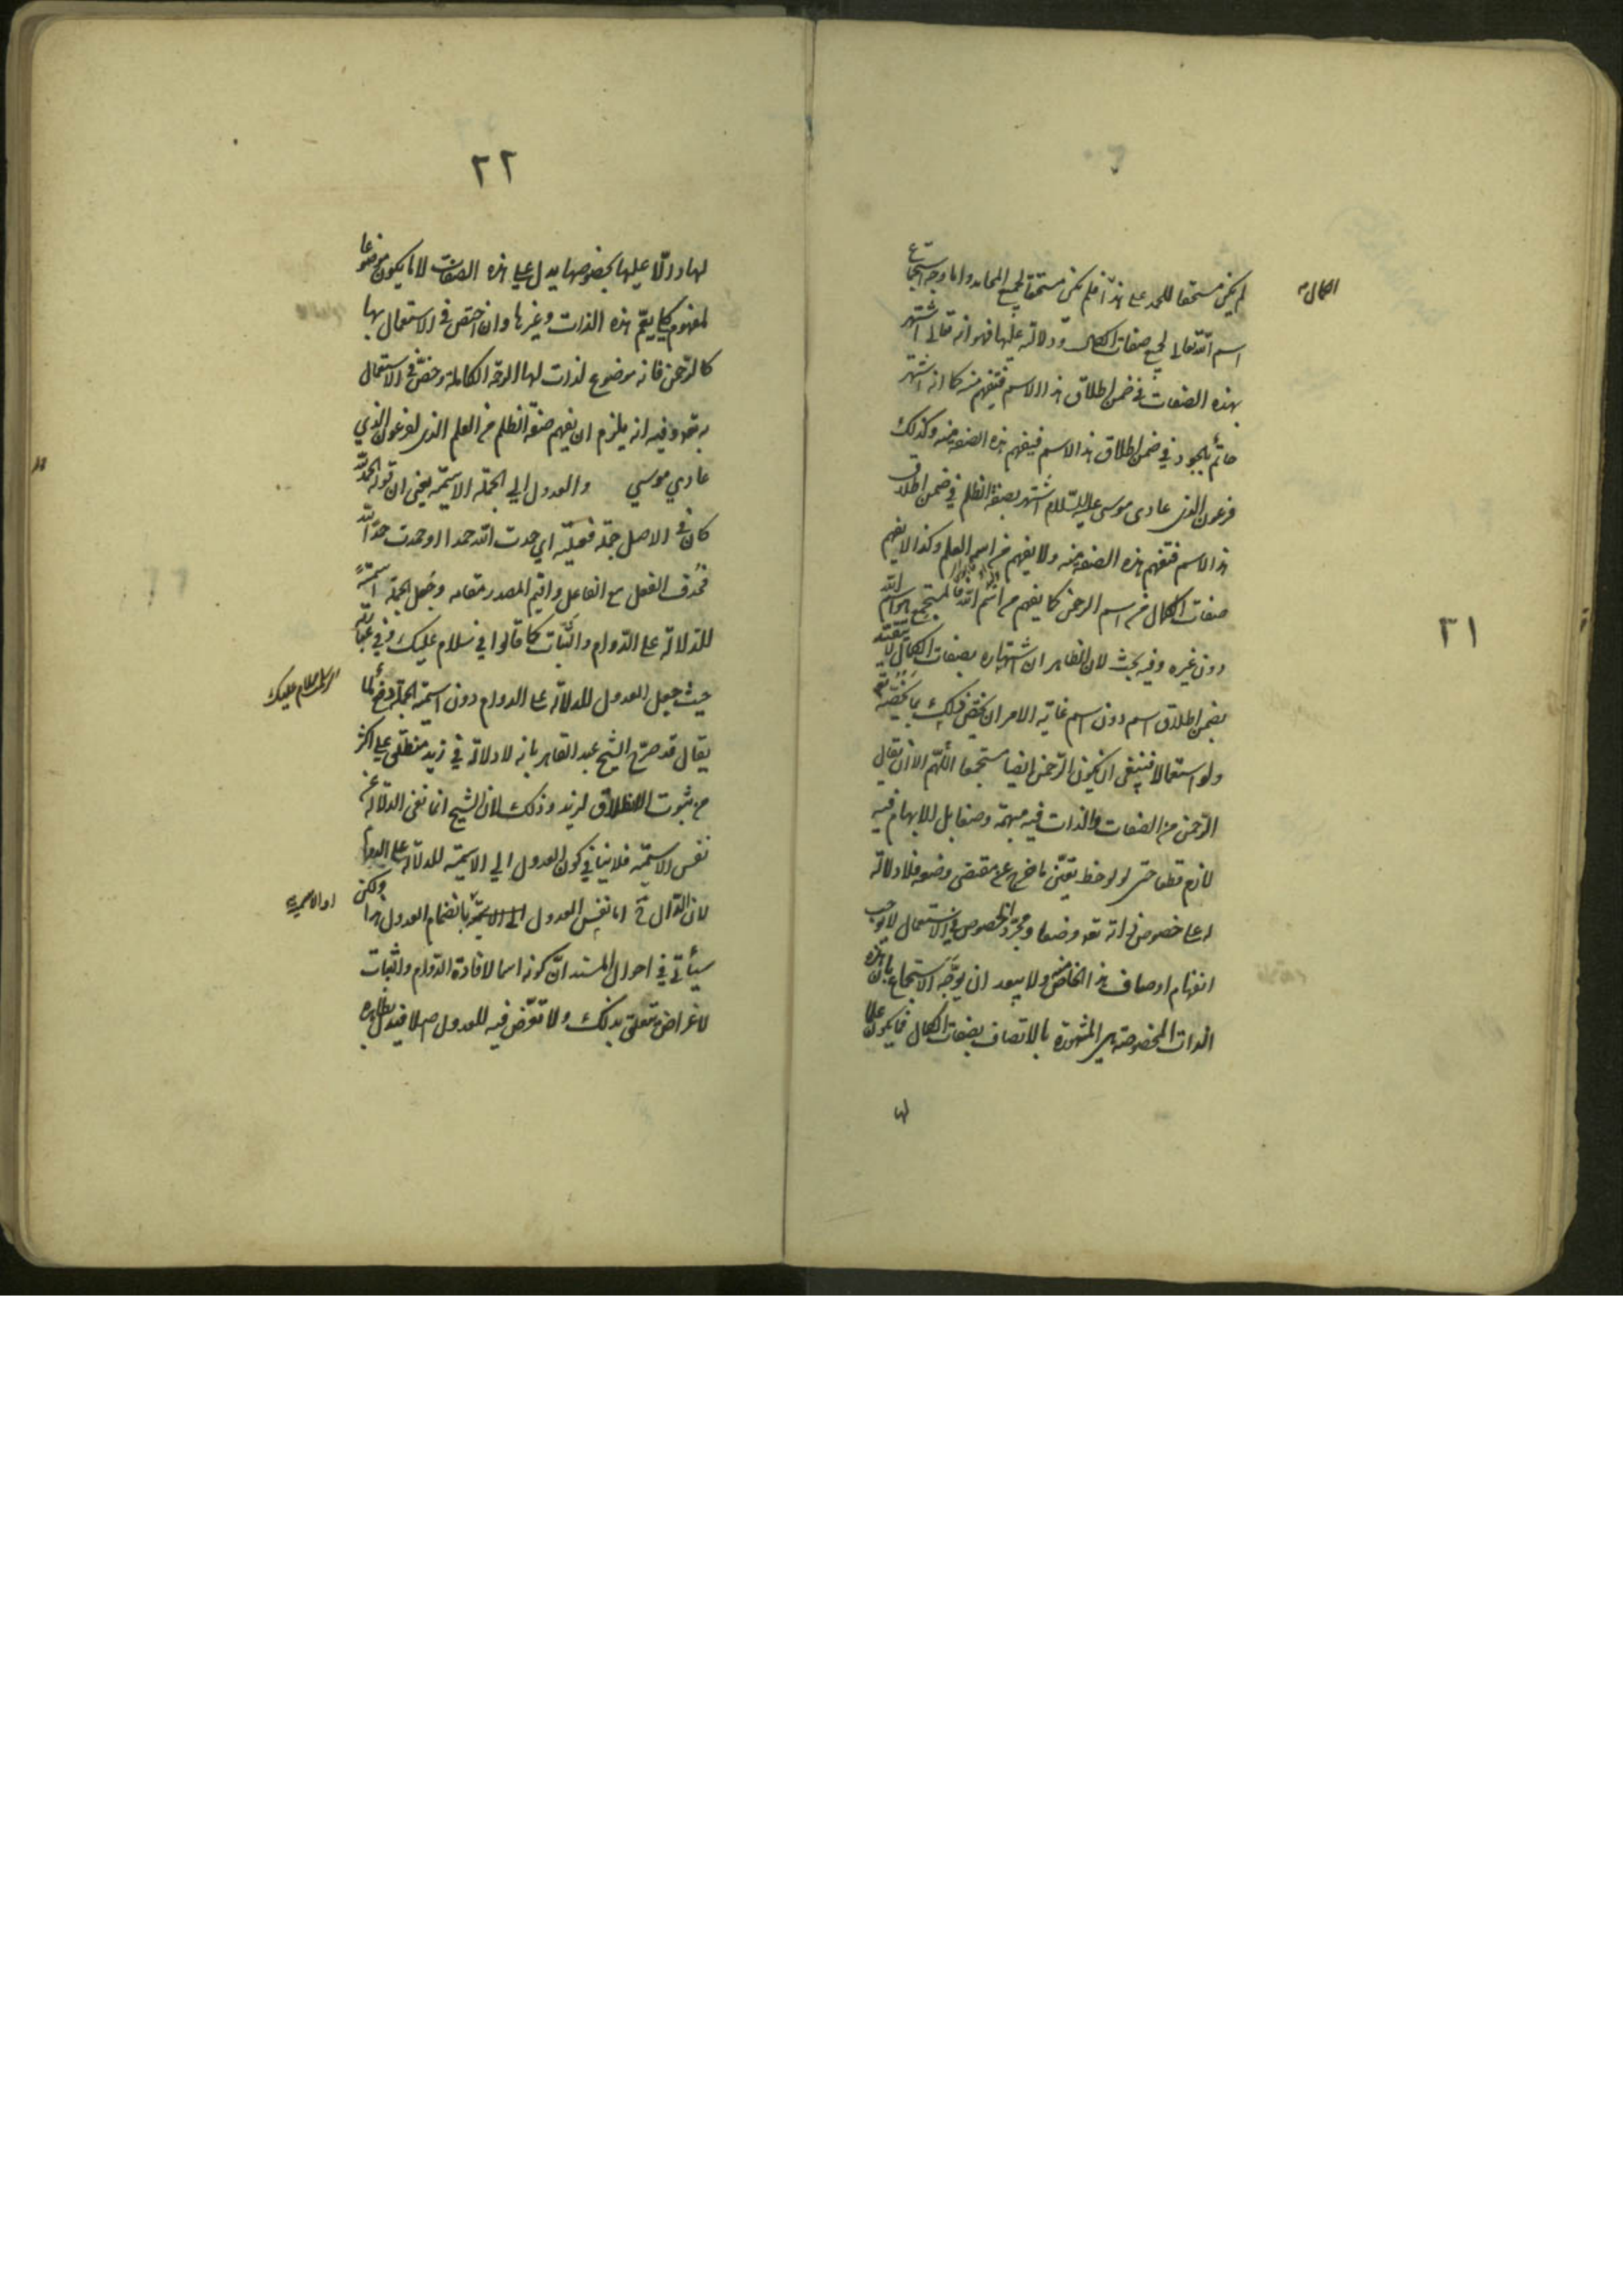 ٢١
لم يكن مستحقا للحمد على هذا فلم يكن مستحقا لجميع المحامد واما وجه استجماع
الكمال
اسم الله تعالى لجميع صفات الكمال ودلالته عليها فهو انه تعالى اشتهر
بهذه الصفات في ضمن اطلاق هذا الاسم فتفهم منه كما انه اشتهر
حاتم بالجود في ضمن اطلاق هذا الاسم فيفهم هذه الصفة منه وكذلك
فرعون الذى عادى موسى عليه السلام اشتهر بصفة الظلم في ضمن اطلاق
هذا الاسم فتفهم هذه الصفة منه ولا يفهم من اسمه العلم وكذا لا يفهم
صفات الكمال من اسم الرحمن كما يفهم من اسم الله
دون غيره وفيه بحث لان الظاهر ان اشتهاره بصفات الكمال لا يتقيد
بضمن اطلاق اسم دون اسم غاية الامر ان يختص ذلك بما يختص به تع
ولو استعمالا فينبغي ان يكون الرحمن ايضا مستجمعا اللهم الا ان يقال
الرحمن من الصفات والذات فيه مبهمة وصفا بل للابهام فيه
لازم قطعا حتى لو لوحظ تعين ما خرج عن مقتضى وضعه فلا دلالة
له على خصوص ذاته تعه وضعا ومجرد الخصوص في الاستعمال لا يوجب
انفهام اوصاف هذا الخاص منه ولا يبعد ان يوجه الاستجماع بان هذه
الذات المخصوصة هي المشهورة بالاتصاف بصفات الكمال فما يكون علما
لها
٢٢
لها دالا عليها بخصوصها يدل على هذه الصفات لا ما يكون موضوعا
لمفهوم كلي يعم هذه الذات وغيرها وان اختص في الاستعمال بها
كالرحمن فانه موضوع لذات لها الرحمة الكاملة وخص في الاستعمال
به تعه وفيه انه يلزم ان يفهم صفة الظلم من العلم الذى لفرعون الذي
عادي موسي والعدول الي الجملة الاسمية يعني ان قوله الحمد لله
كان في الاصل جملة فعلية اي حمدت الله حمدا او حمدت حمدا لله
فحذف الفعل مع الفاعل واقيم المصدر مقامه وجعل الجملة اسمية
للدلالة على الدوام والثبات كما قالوا في سلام عليك وفي عبارته
حيث جعل العدول للدلالة على الدوام دون اسمية الجملة دفع لما
يقال قد صرح الشيخ عبد القاهر بانه لا دلالة في زيد منطلق على اكثر
من ثبوت الانطلاق لزيد وذلك لان الشيخ انما نفى الدلالة عن
نفس الاسمية فلا ينافي كون العدول الي الاسمية للدلالة على الدوام
لان الدال ح اما نفس العدول او الاسمية بانضمام العدول هذا ولكن
سيأتي في احوال المسند ان كونه اسما لافادة الدوام والثبات
لاغراض تتعلق بذلك ولا تعرض فيه للعدول